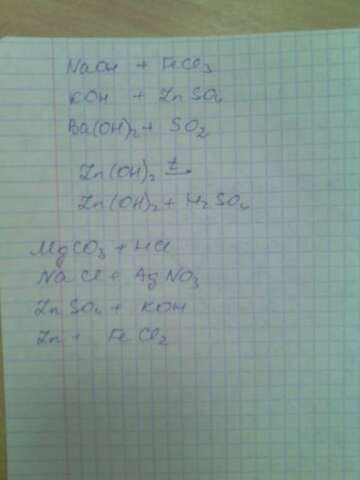 NaOH + FeCl3
KOH + ZnSO4
Ba(OH)2 + SO2
Zn(OH)2 t→
Zn(OH)2 + H2SO4
MgCO3 + HCl
NaCl + AgNO3
ZnSO4 + KOH
Zn + FeCl2